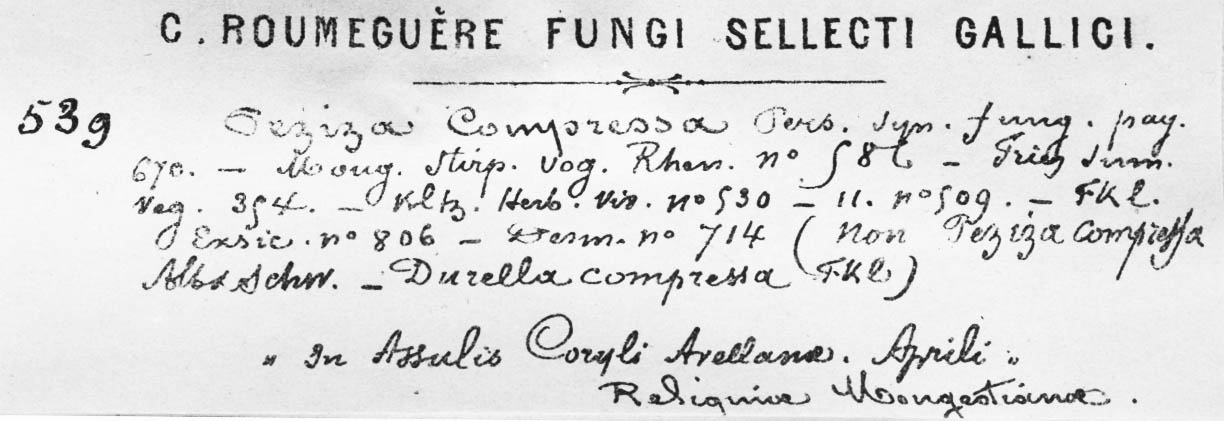 C. ROUMEGUÈRE FUNGI SELLECTI GALLICI.
539 Peziza Compressa Pers. Syn. fung. pag.
670. – Moug. Stirp. Vog. Rhen. nº 58 – Fries Sum.
Veg. 354. – Kltz. Herb. Viv. nº 530 – II. nº 509. – FKl.
Exsic. nº 806 – Desm. nº 714 (non Peziza compressa
Alb & Schw. – Durella compressa FKl)
" In Assulis Coryli Avellanæ. Aprili "
Reliquiæ Mougeotianæ.